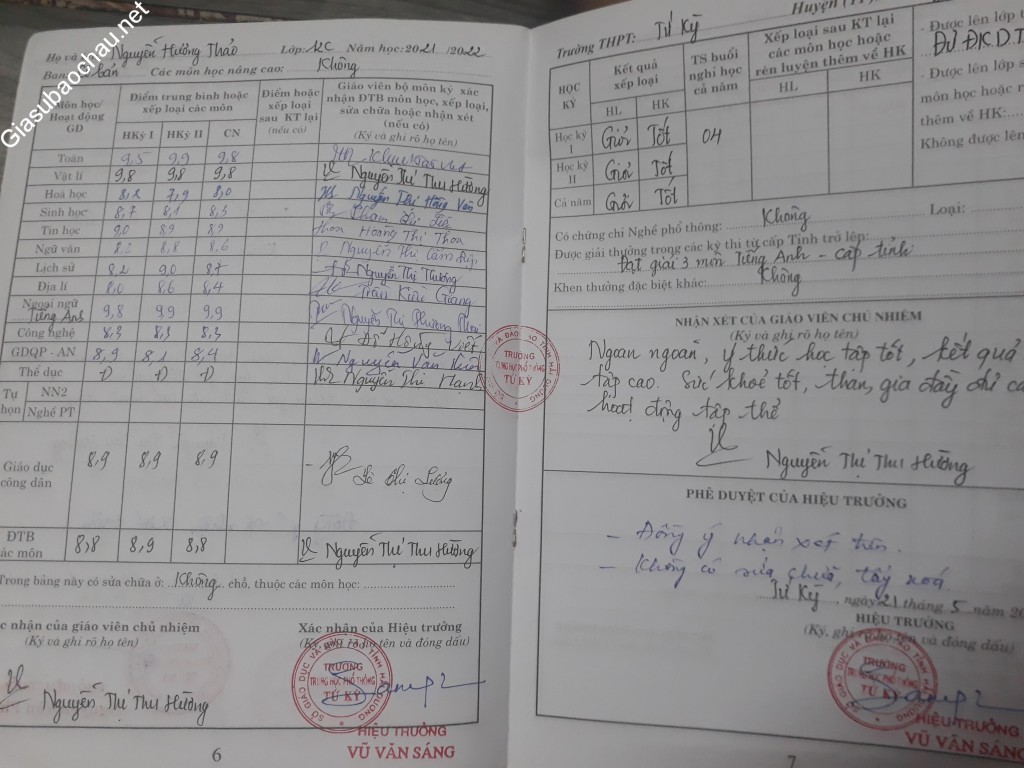 Giasubaochau.net
Họ và Nguyễn Hương Thảo Lớp: 12C Năm học: 2021 /2022
Ban: bản Các môn học nâng cao: Không
Môn học/ Hoạt động GD
Điểm trung bình hoặc xếp loại các môn
HKỳ I HKỳ II CN
Điểm hoặc xếp loại sau KT lại (nếu có)
Giáo viên bộ môn ký xác nhận ĐTB môn học, xếp loại, sửa chữa hoặc nhận xét (nếu có)
(Ký và ghi rõ họ tên)
Toán 9,5 9,9 9,8
Vật lí 9,8 9,8 9,8 Nguyễn Thị Thu Hường
Hoá học 8,2 7,9 8,0 Nguyễn Thị Hồng Vân
Sinh học 8,7 8,1 8,3 Phạm Thị
Tin học 9,0 8,9 8,9 Thoa Hoàng Thị Thoa
Ngữ văn 8,2 8,8 8,6 Nguyễn Thị Cẩm
Lịch sử 8,2 9,0 8,7 Nguyễn Thị Thương
Địa lí 8,0 8,6 8,4 Trần Kiều Giang
Ngoại ngữ Tiếng Anh 9,8 9,9 9,9 Nguyễn Thị Phương
Công nghệ 8,3 8,3 8,3 Đỗ Hồng
GDQP - AN 8,9 8,1 8,4 Nguyễn Văn
Thể dục Đ Đ Đ Nguyễn Thị Hạnh
Tự chọn NN2
Nghề PT
Giáo dục công dân 8,9 8,9 8,9
ĐTB các môn 8,8 8,9 8,8 Nguyễn Thị Thu Hường
Trong bảng này có sửa chữa ở: Không chỗ, thuộc các môn học:
nhận của giáo viên chủ nhiệm
(Ký và ghi rõ họ tên)
Nguyễn Thị Thu Hường
Xác nhận của Hiệu trưởng
(Ký, ghi rõ họ tên và đóng dấu)
SỞ GIÁO DỤC VÀ ĐÀO TẠO TỈNH HẢI DƯƠNG
TRƯỜNG
TRUNG HỌC PHỔ THÔNG
TỨ KỲ
HIỆU TRƯỞNG
VŨ VĂN SÁNG
6
TRƯỜNG
TRUNG HỌC PHỔ THÔNG
TỨ KỲ
Trường THPT: Tứ Kỳ Huyện
HỌC KỲ
Kết quả xếp loại
HL HK
TS buổi nghỉ học cả năm
Xếp loại sau KT lại các môn học hoặc rèn luyện thêm về HK
HL HK
Học kỳ I Giỏi Tốt 04
Học kỳ II Giỏi Tốt
Cả năm Giỏi Tốt
- Được lên lớp
Đủ ĐK.D.T
- Được lên lớp
môn học hoặc
thêm về HK:
Không được lên
Có chứng chỉ Nghề phổ thông: Không Loại:
Được giải thưởng trong các kỳ thi từ cấp Tỉnh trở lên:
Đạt giải 3 môn Tiếng Anh - cấp tỉnh
Khen thưởng đặc biệt khác: Không
NHẬN XÉT CỦA GIÁO VIÊN CHỦ NHIỆM
(Ký và ghi rõ họ tên)
Ngoan ngoãn, ý thức học tập tốt, kết quả
tập cao. Sức khoẻ tốt, tham gia đầy đủ
hoạt động tập thể
Nguyễn Thị Thu Hường
PHÊ DUYỆT CỦA HIỆU TRƯỞNG
- Đồng ý nhận xét trên.
- Không có sửa chữa, tẩy xoá
Tứ Kỳ, ngày 21 tháng 5 năm
HIỆU TRƯỞNG
(Ký, ghi rõ họ tên và đóng dấu)
TRƯỜNG
TRUNG HỌC PHỔ THÔNG
TỨ KỲ
HIỆU TRƯỞNG
VŨ VĂN SÁNG
7